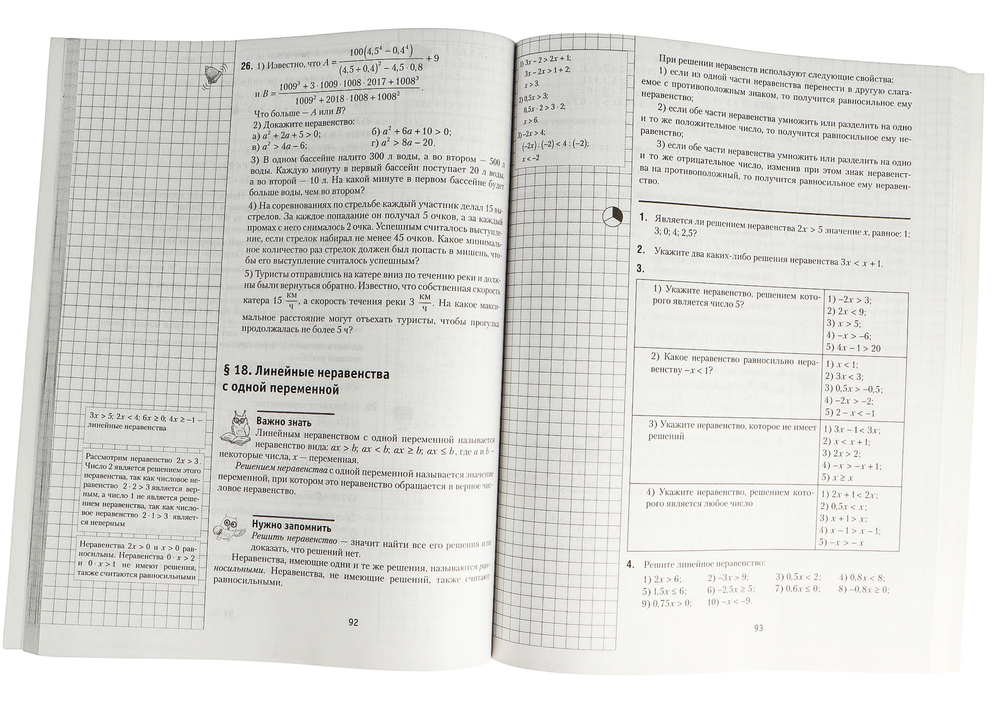 26. 1) Известно, что A = 100(4,5⁴ − 0,4⁴) / ((4,5 + 0,4)² − 4,5 · 0,8) + 9
и B = (1009³ + 3 · 1009 · 1008 · 2017 + 1008³) / (1009² + 2018 · 1008 + 1008²).
Что больше — A или B?
2) Докажите неравенство:
а) a² + 2a + 5 > 0; б) a² + 6a + 10 > 0;
в) a² > 4a − 6; г) a² > 8a − 20.
3) В одном бассейне налито 300 л воды, а во втором — 500 л
воды. Каждую минуту в первый бассейн поступает 20 л воды,
а во второй — 10 л. На какой минуте в первом бассейне будет
больше воды, чем во втором?
4) На соревнованиях по стрельбе каждый участник делал 15 вы-
стрелов. За каждое попадание он получал 5 очков, а за каждый
промах с него снималось 2 очка. Успешным считалось выступле-
ние, если стрелок набирал не менее 45 очков. Какое минималь-
ное количество раз стрелок должен был попасть в мишень, что-
бы его выступление считалось успешным?
5) Туристы отправились на катере вниз по течению реки и долж-
ны были вернуться обратно. Известно, что собственная скорость
катера 15 км/ч, а скорость течения реки 3 км/ч. На какое макси-
мальное расстояние могут отъехать туристы, чтобы прогулка
продолжалась не более 5 ч?
§ 18. Линейные неравенства
с одной переменной
3x > 5; 2x < 4; 6x ≥ 0; 4x ≥ −1 –
линейные неравенства
Важно знать
Линейным неравенством с одной переменной называется
неравенство вида: ax > b; ax < b; ax ≥ b; ax ≤ b, где a и b –
некоторые числа, x — переменная.
Решением неравенства с одной переменной называется значение
переменной, при котором это неравенство обращается в верное чис-
ловое неравенство.
Рассмотрим неравенство 2x > 3.
Число 2 является решением этого
неравенства, так как числовое не-
равенство 2 · 2 > 3 является вер-
ным, а число 1 не является реше-
нием неравенства, так как число-
вое неравенство 2 · 1 > 3 являет-
ся неверным
Нужно запомнить
Решить неравенство — значит найти все его решения или
доказать, что решений нет.
Неравенства, имеющие одни и те же решения, называются рав-
носильными. Неравенства, не имеющие решений, также считают
равносильными.
Неравенства 2x > 0 и x > 0 рав-
носильны. Неравенства 0 · x > 2
и 0 · x > 1 не имеют решения,
также считаются равносильными
92
1) 3x − 2 > 2x + 1;
3x − 2x > 1 + 2;
x > 3.
2) 0,5x > 3;
0,5x · 2 > 3 · 2;
x > 6.
3) −2x > 4;
(−2x) : (−2) < 4 : (−2);
x < −2
При решении неравенств используют следующие свойства:
1) если из одной части неравенства перенести в другую слага-
емое с противоположным знаком, то получится равносильное ему
неравенство;
2) если обе части неравенства умножить или разделить на одно
и то же положительное число, то получится равносильное ему не-
равенство;
3) если обе части неравенства умножить или разделить на одно
и то же отрицательное число, изменив при этом знак неравенст-
ва на противоположный, то получится равносильное ему неравен-
ство.
1. Является ли решением неравенства 2x > 5 значение x, равное: 1;
3; 0; 4; 2,5?
2. Укажите два каких-либо решения неравенства 3x < x + 1.
3.
1) Укажите неравенство, решением кото-
рого является число 5?
1) −2x > 3;
2) 2x < 9;
3) x > 5;
4) −x > −6;
5) 4x − 1 > 20
2) Какое неравенство равносильно нера-
венству −x < 1?
1) x < 1;
2) 3x < 3;
3) 0,5x > −0,5;
4) −2x > −2;
5) 2 − x < −1
3) Укажите неравенство, которое не имеет
решений
1) 3x − 1 < 3x;
2) x < x + 1;
3) 2x > 2;
4) −x > −x + 1;
5) x ≥ x
4) Укажите неравенство, решением кото-
рого является любое число
1) 2x + 1 < 2x;
2) 0,5x < x;
3) x + 1 > x;
4) x − 1 > x − 1;
5) −x > −x
4. Решите линейное неравенство:
1) 2x > 6; 2) −3x > 9; 3) 0,5x < 2; 4) 0,8x < 8;
5) 1,5x ≤ 6; 6) −2,5x ≥ 5; 7) 0,6x ≤ 0; 8) −0,8x ≥ 0;
9) 0,75x > 0; 10) −x < −9.
93